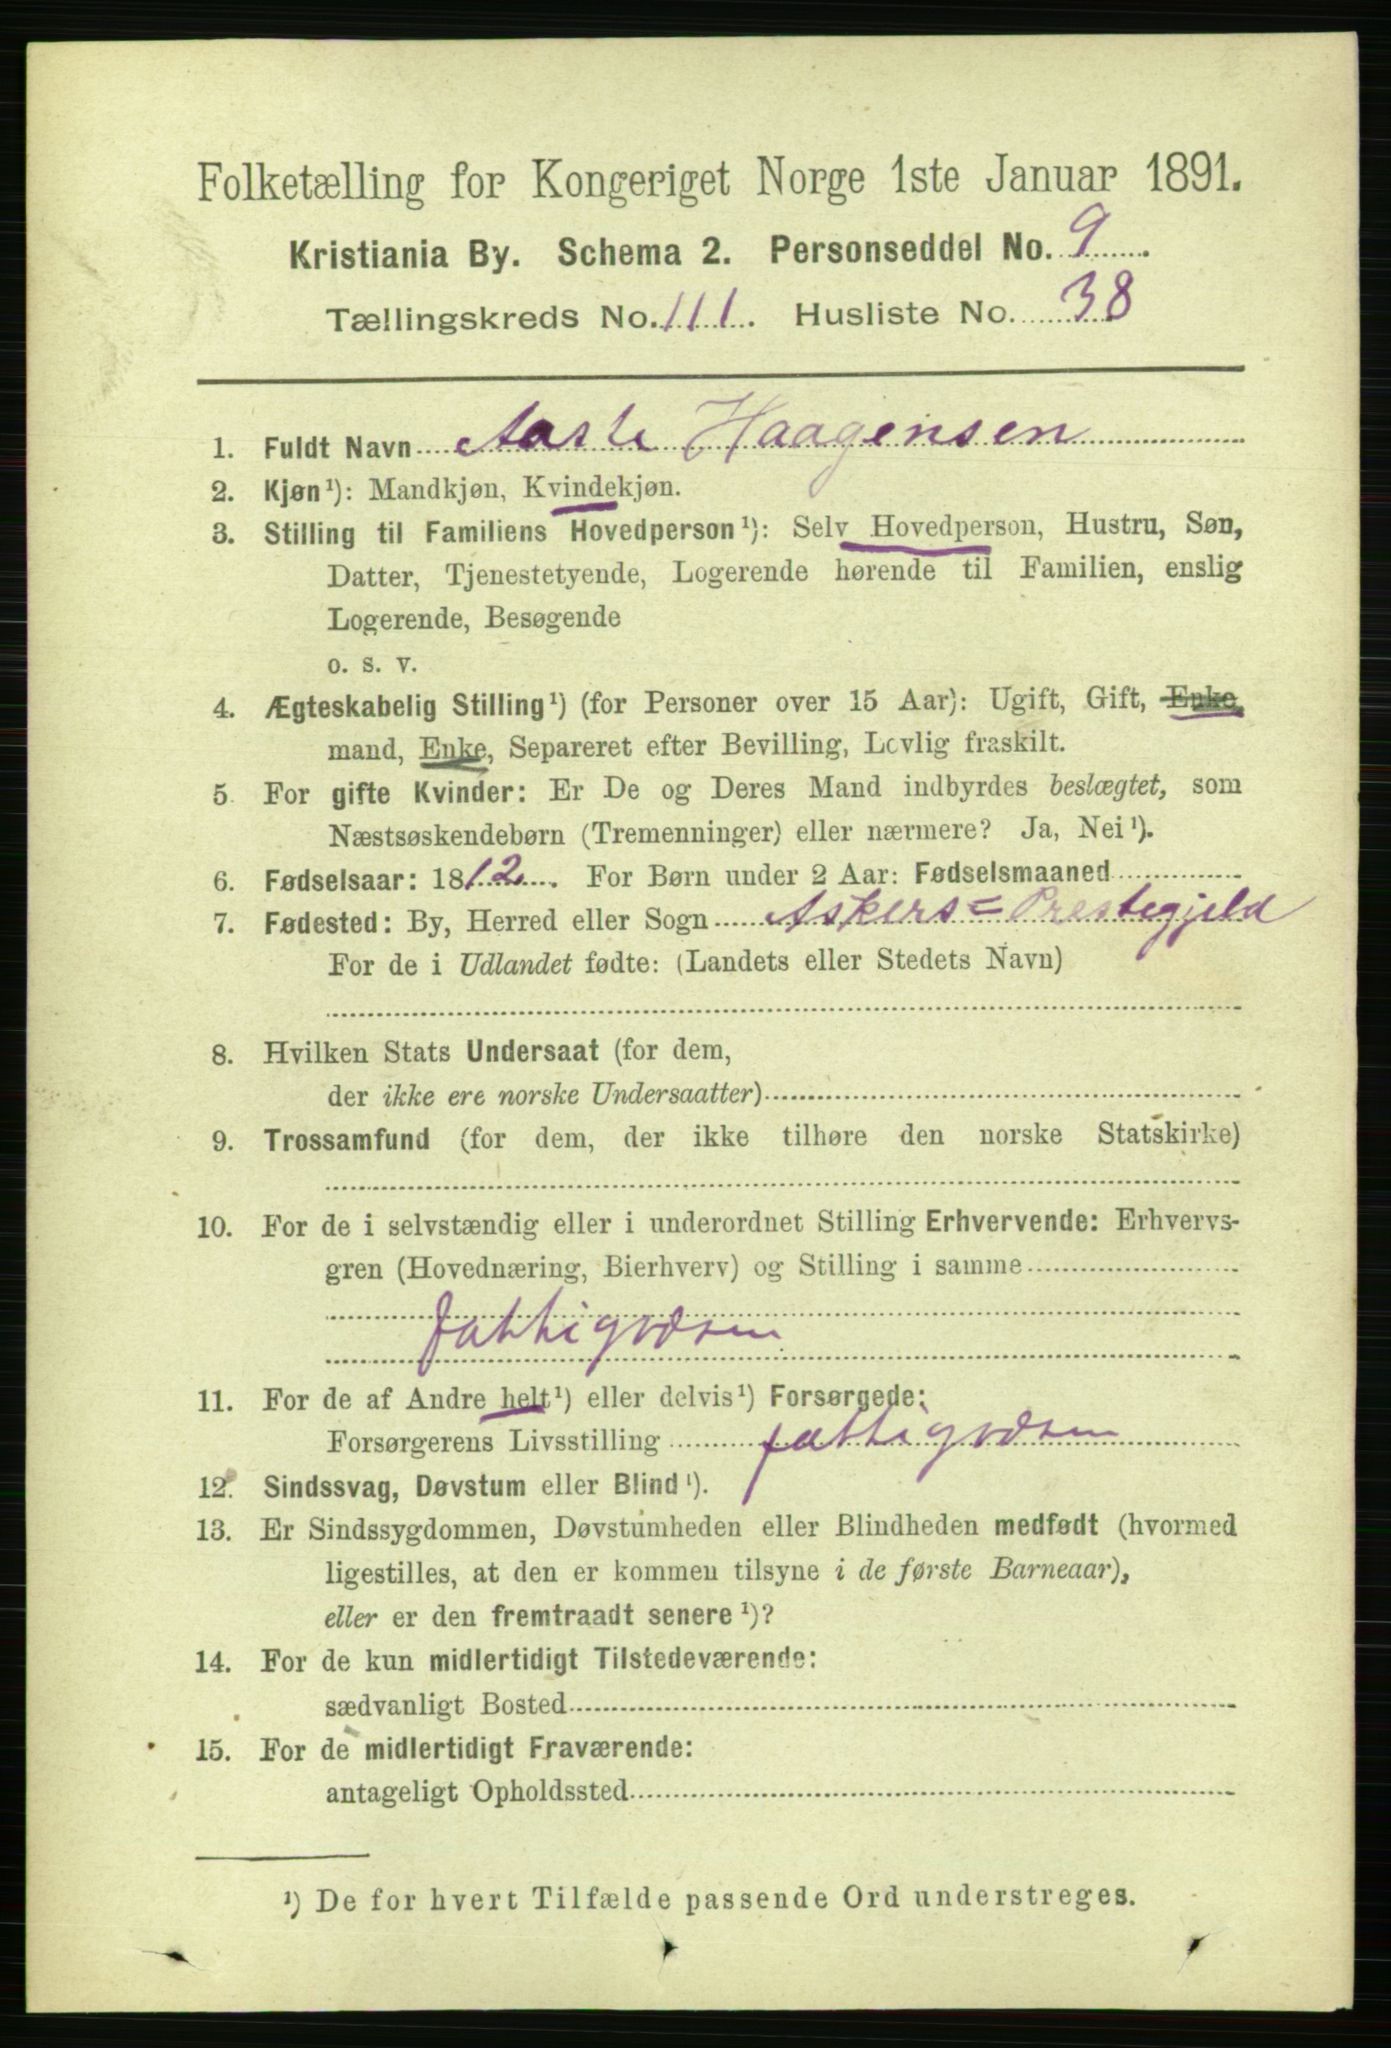 Folketælling for Kongeriget Norge 1ste Januar 1891.
Kristiania By. Schema 2. Personseddel No. 9
Tællingskreds No. 111. Husliste No. 38
1. Fuldt Navn Aaste Haagensen
2. Kjøn¹): Mandkjøn, Kvindekjøn.
3. Stilling til Familiens Hovedperson¹): Selv Hovedperson, Hustru, Søn,
Datter, Tjenestetyende, Logerende hørende til Familien, enslig
Logerende, Besøgende
o. s. v.
4. Ægteskabelig Stilling¹) (for Personer over 15 Aar): Ugift, Gift, Enke
mand, Enke, Separeret efter Bevilling, Lovlig fraskilt.
5 For gifte Kvinder: Er De og Deres Mand indbyrdes beslægtet, som
Næstsøskendebørn (Tremenninger) eller nærmere? Ja, Nei¹).
6. Fødselsaar: 1812. For Børn under 2 Aar: Fødselsmaaned
7. Fødested: By, Herred eller Sogn Askers=Prestegjeld
For de i Udlandet fødte: (Landets eller Stedets Navn)
8. Hvilken Stats Undersaat (for dem,
der ikke ere norske Undersaatter)
9. Trossamfund (for dem, der ikke tilhøre den norske Statskirke)
10. For de i selvstændig eller i underordnet Stilling Erhvervende: Erhvervs-
gren (Hovednæring, Bierhverv) og Stilling i samme
fattigvæsen
11. For de af Andre helt¹) eller delvis¹) Forsørgede:
Forsørgerens Livsstilling fattigvæsen
12. Sindssvag, Døvstum eller Blind¹).
13. Er Sindssygdommen, Døvstumheden eller Blindheden medfødt (hvormed
ligestilles, at den er kommen tilsyne i de første Barneaar),
eller er den fremtraadt senere¹)?
14. For de kun midlertidigt Tilstedeværende:
sædvanligt Bosted
15. For de midlertidigt Fraværende:
antageligt Opholdssted
¹) De for hvert Tilfælde passende Ord understreges.